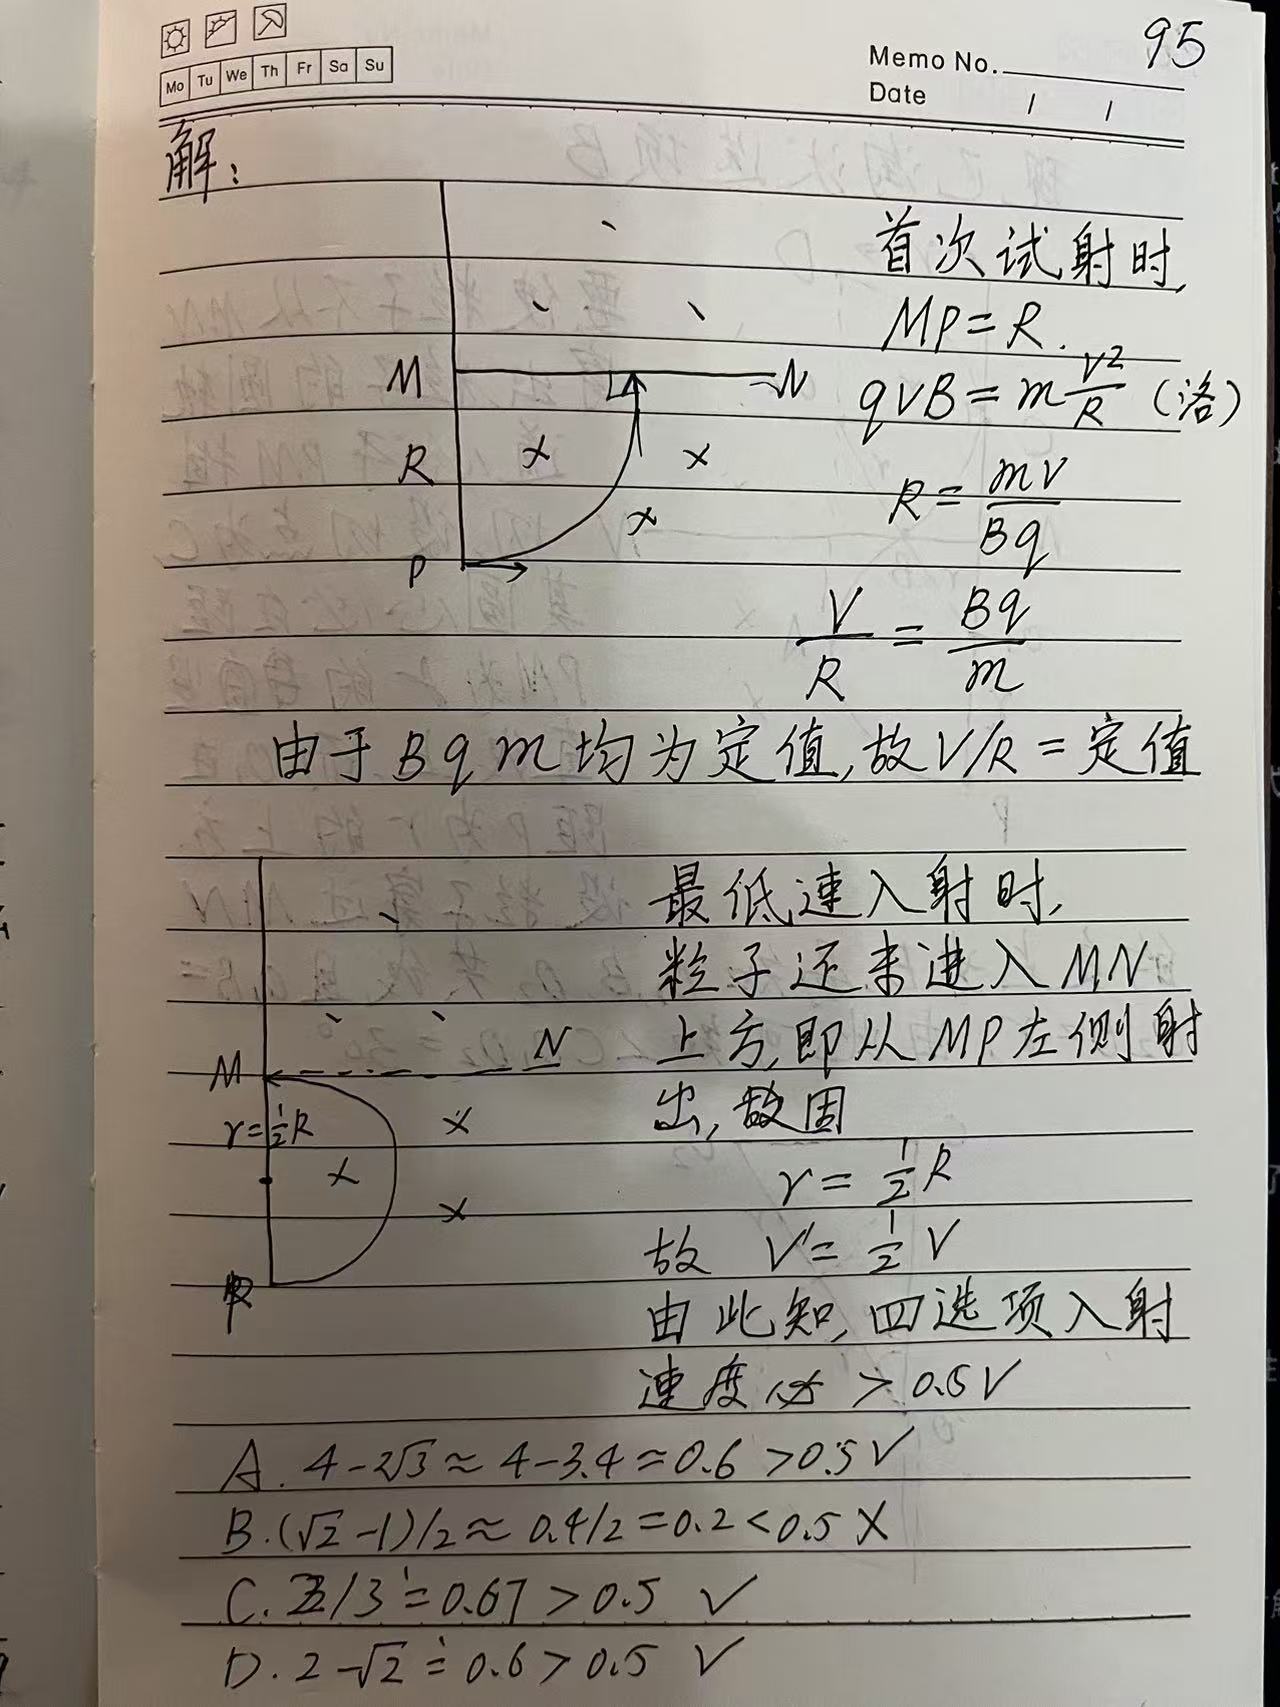 95
Memo No.
Mo Tu We Th Fr Sa Su
Date / /
解:
首次试射时,
MP=R.
M N
qVB=m V²/R (洛)
R
R= mV/Bq
P
V/R = Bq/m
由于BqM均为定值,故V/R=定值
最低速入射时,
粒子还未进入MN
上方,即从MP左侧射
M N
出,故固
r=½R
r=½R
故 V'=½V
P
由此知,四选项入射
速度必>0.5V
A. 4-2√3≈4-3.4≈0.6>0.5√
B.(√2-1)/2≈0.4/2=0.2<0.5 X
C. 2/3≐0.67>0.5 √
D. 2-√2≐0.6>0.5 √